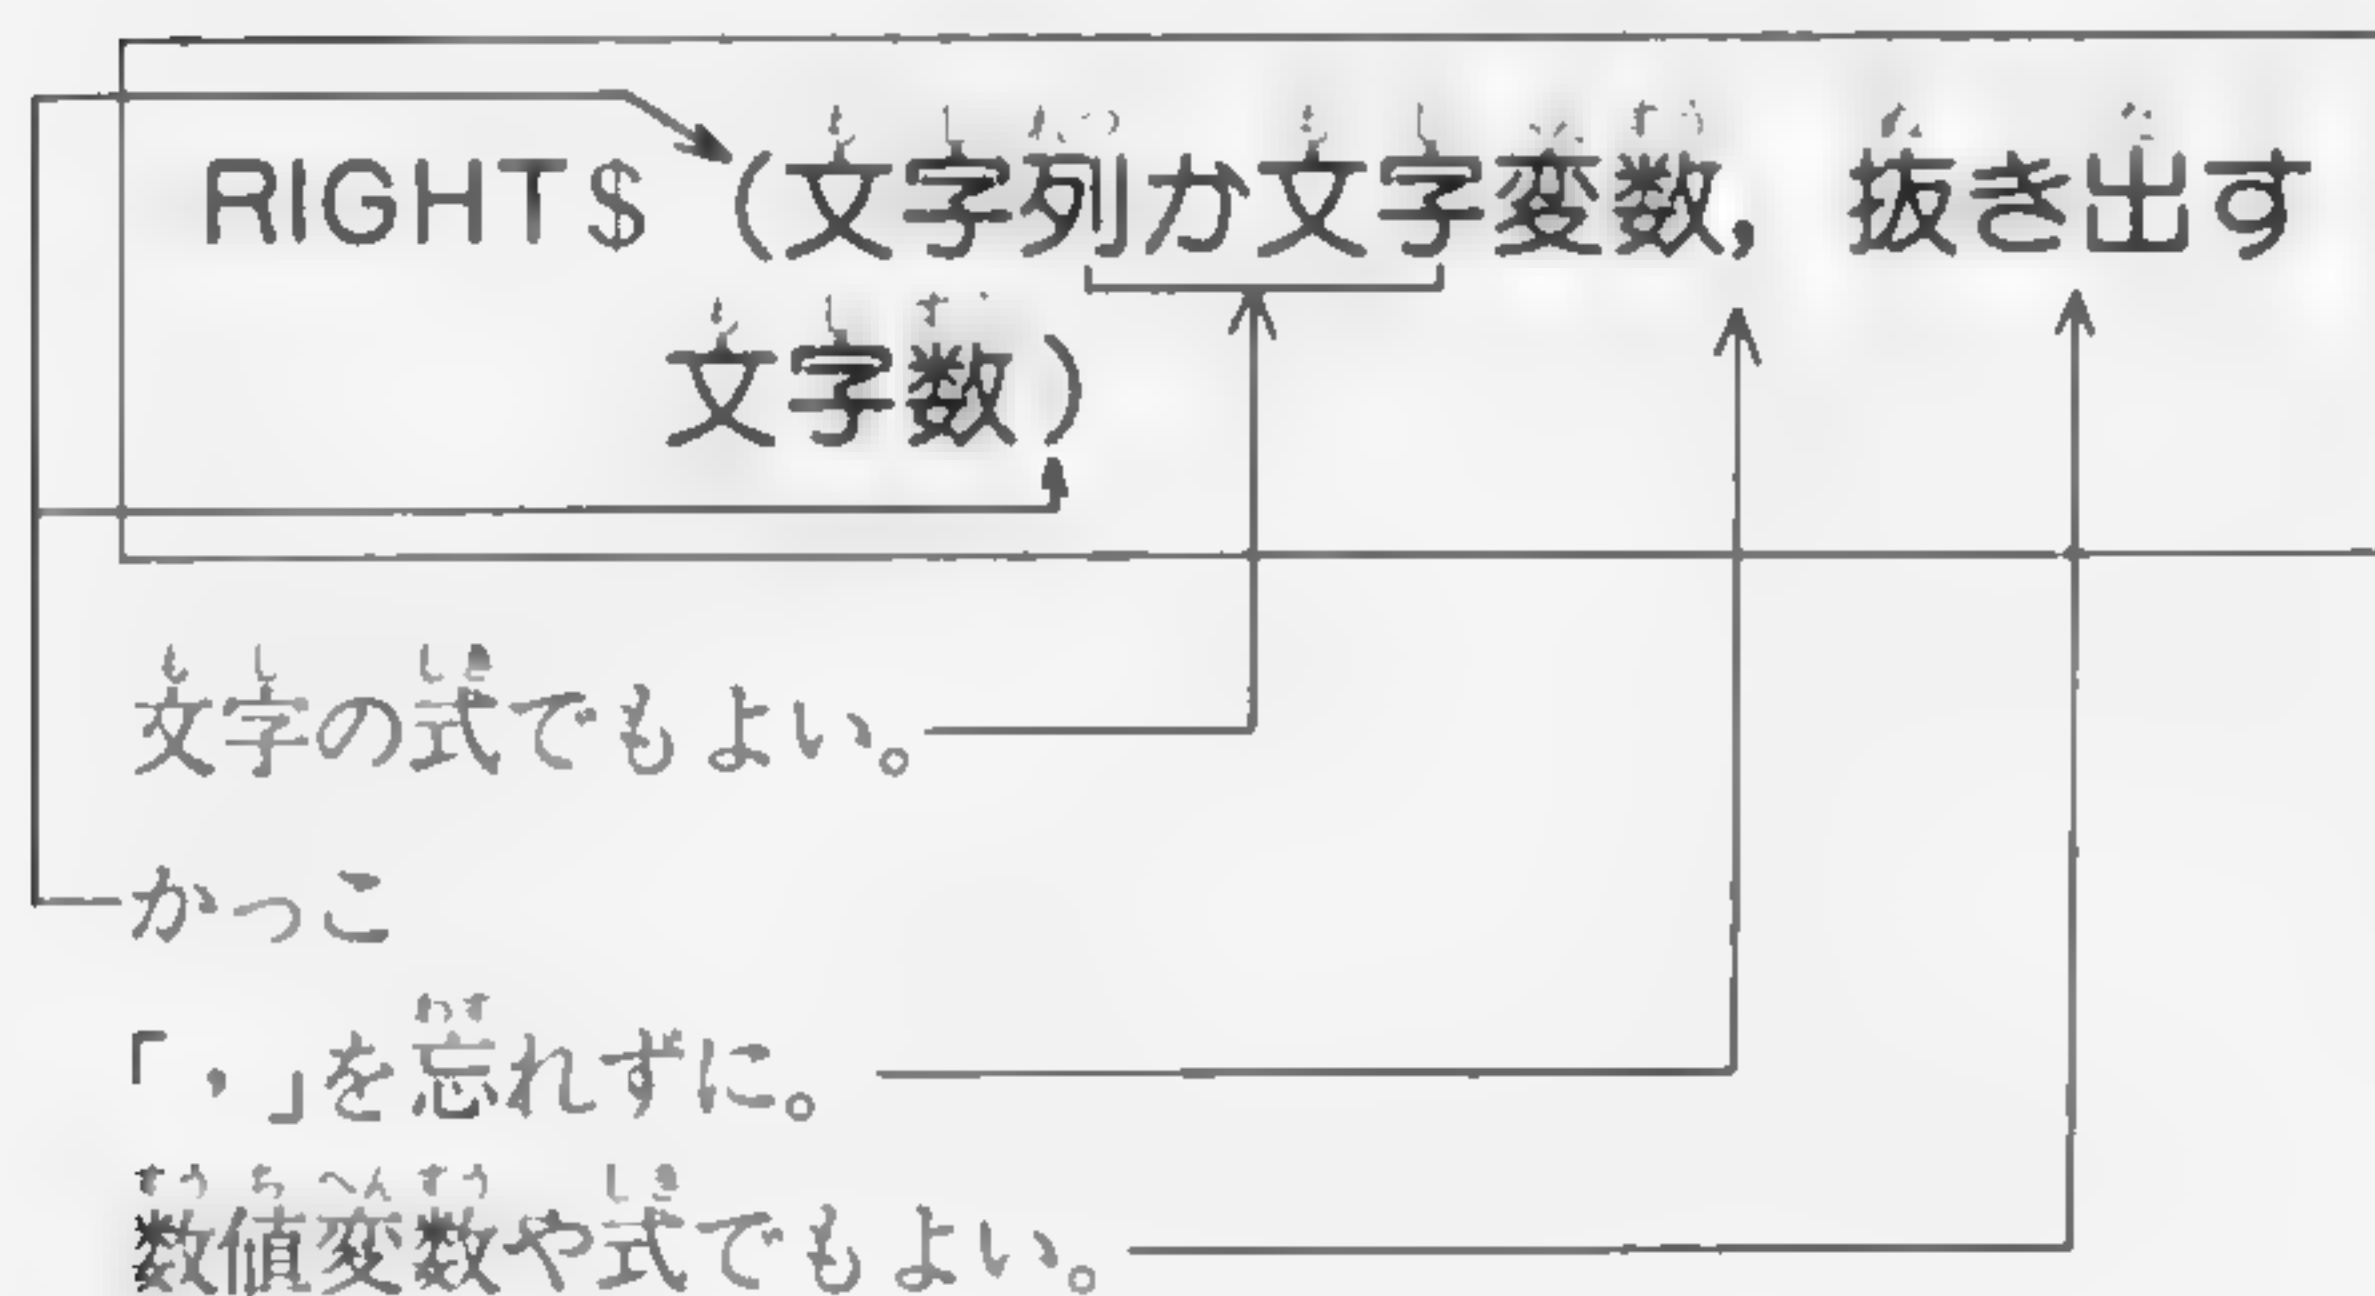 RIGHT$ (文字列か文字変数, 抜き出す
文字数)
文字の式でもよい。
かっこ
「,」を忘れずに。
数値変数や式でもよい。